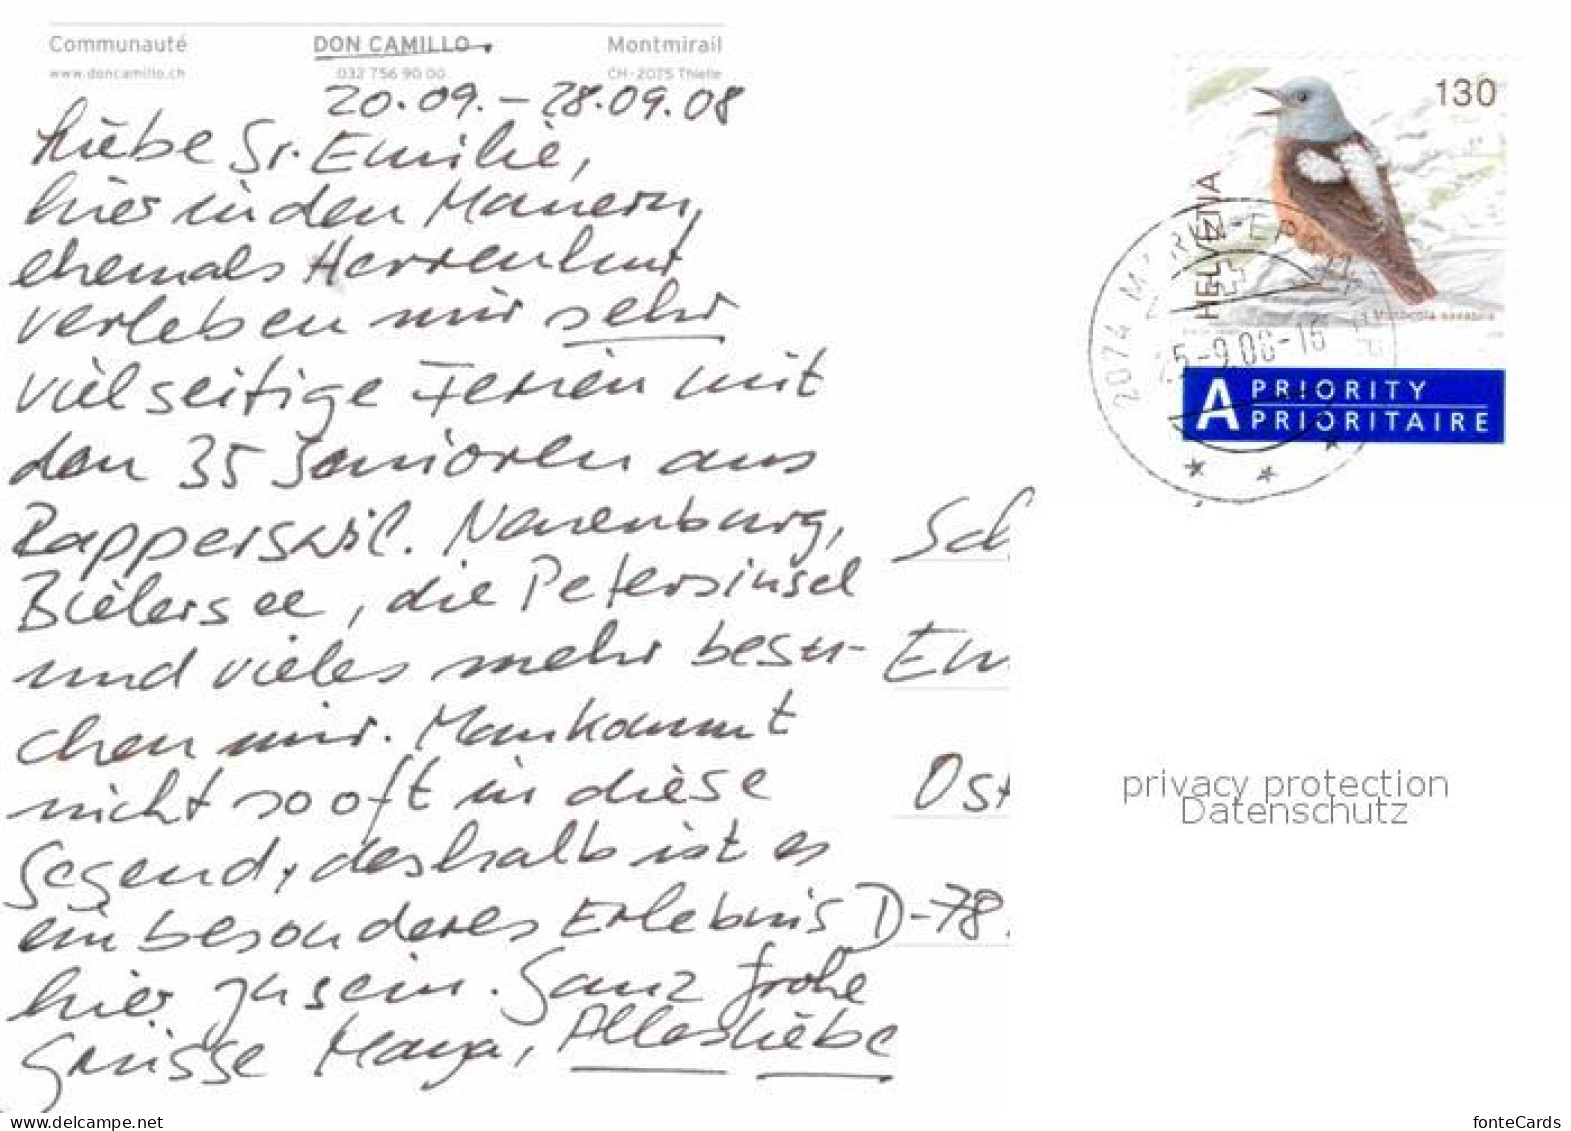 Communauté DON CAMILLO Montmirail
www.doncamillo.ch 032 756 90 00 CH-2075 Thielle
20.09. - 28.09.08
Liebe Sr. Emilie,
hier in den Mauern,
ehemals Herrenhut
verleben wir sehr
vielseitige Ferien mit
den 35 Senioren aus
Rapperswil. Neuenburg,
Bielersee, die Petersinsel
und vieles mehr besu-
chen wir. Man kommt
nicht so oft in diese
Gegend, deshalb ist es
ein besonderes Erlebnis
hier zu sein. Ganz frohe
Grüsse Maya, Alles Liebe
Sch
Em
Ost
D-78
130
HELVETIA
Monticola saxatilis
2074 5-9.08-16
A PRIORITY
PRIORITAIRE
privacy protection
Datenschutz
www.delcampe.net
fonteCards